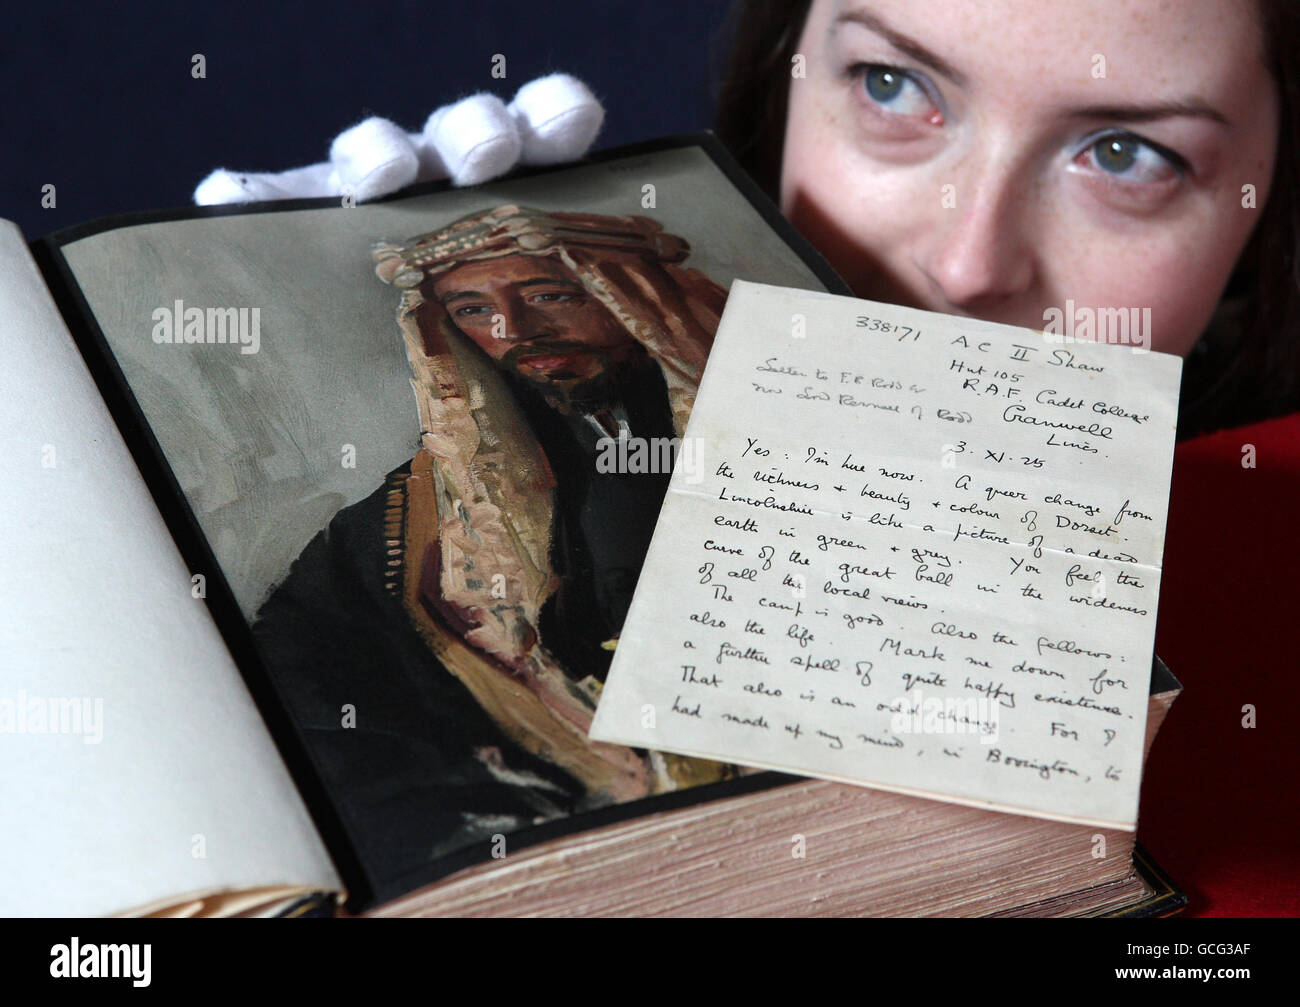 338171 A C II Shaw
Hut 105
R.A.F. Cadet College
Cranwell
Lincs.
Letter to F. R. Rodd
now Lord Rennell of Rodd
3. XI. 25
Yes: I'm here now. A queer change from
the richness + beauty + colour of Dorset.
Lincolnshire is like a picture of a dead
earth in green + grey. You feel the
curve of the great ball in the wideness
of all the local views.
The camp is good. Also the fellows:
also the life. Mark me down for
a further spell of quite happy existence.
That also is an odd change. For I
had made up my mind, in Bovington, to
alamy
a
alamy
alamy
Image ID: GCG3AF
www.alamy.com